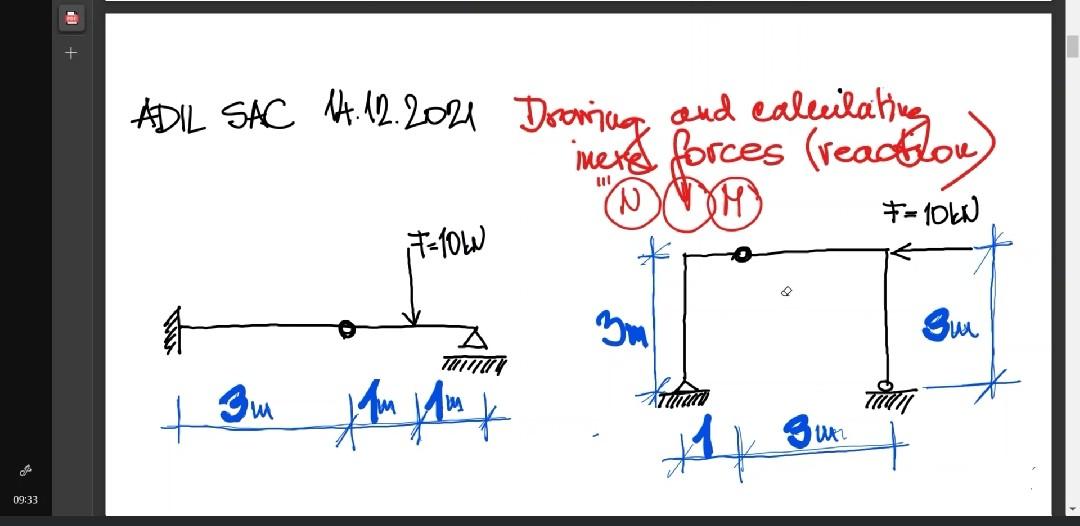 ADIL SAC 14.12.2021 Drawing and calculating
forces (reaction)
N M
F=10kN
F=10kN
3m
3m
3m 1m 1m
1 3m
09:33